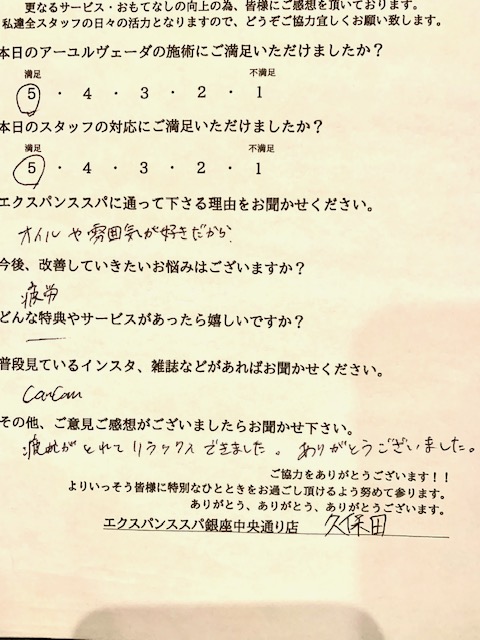 更なるサービス・おもてなしの向上の為、皆様にご感想を頂いております。
私達全スタッフの日々の活力となりますので、どうぞご協力宜しくお願い致します。
本日のアーユルヴェーダの施術にご満足いただけましたか？
満足 不満足
5 ・ 4 ・ 3 ・ 2 ・ 1
本日のスタッフの対応にご満足いただけましたか？
満足 不満足
5 ・ 4 ・ 3 ・ 2 ・ 1
エクスパンススパに通って下さる理由をお聞かせください。
オイルや雰囲気が好きだから。
今後、改善していきたいお悩みはございますか？
疲労
どんな特典やサービスがあったら嬉しいですか？
普段見ているインスタ、雑誌などがあればお聞かせください。
CanCam
その他、ご意見ご感想がございましたらお聞かせ下さい。
疲れがとれてリラックスできました。ありがとうございました。
ご協力をありがとうございます！！
よりいっそう皆様に特別なひとときをお過ごし頂けるよう努めて参ります。
ありがとう、ありがとう、ありがとうございます。
エクスパンススパ銀座中央通り店 久保田